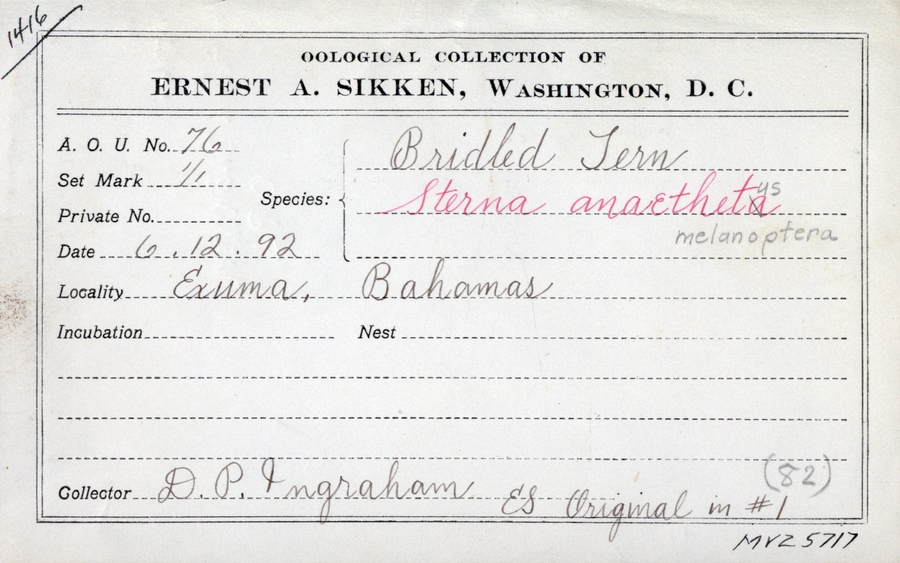 1416
OOLOGICAL COLLECTION OF
ERNEST A. SIKKEN, WASHINGTON, D. C.
A. O. U. No. 76
Set Mark 1/1
Private No.
Date 6.12.92
Species:
Bridled Tern
Sterna anaethetaus
melanoptera
Locality Exuma, Bahamas
Incubation Nest
Collector D. P. Ingraham
ES Original in #1
(82)
MVZ 5717